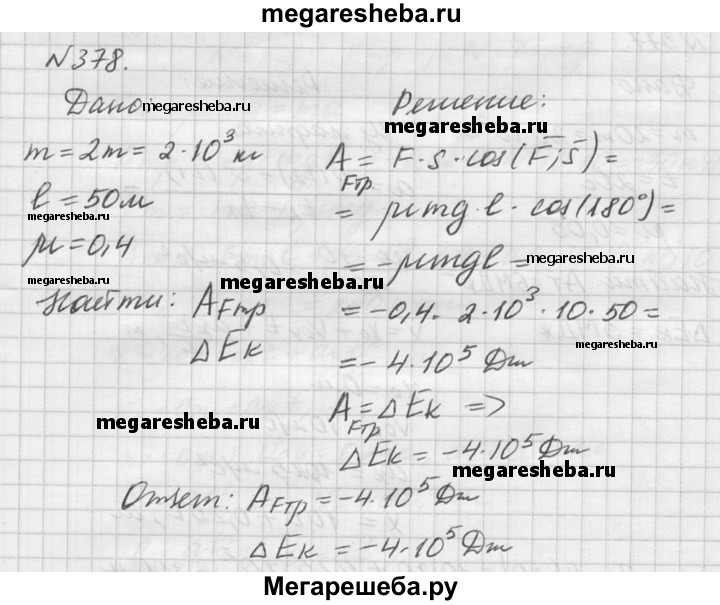 megaresheba.ru
№378.
Дано: megaresheba.ru
m = 2т = 2·10³ кг
l = 50м
megaresheba.ru
μ = 0,4
megaresheba.ru
Найти: AFтр
ΔEк
megaresheba.ru
Решение:
megaresheba.ru
AFтр = F·s·cos(F̄;s̄) =
= μmg·l·cos(180°) =
= -μmgl = megaresheba.ru
= -0,4·2·10³·10·50 =
megaresheba.ru
= -4·10⁵ Дж
AFтр = ΔEк =>
ΔEк = -4·10⁵ Дж
megaresheba.ru
Ответ: AFтр = -4·10⁵ Дж
ΔEк = -4·10⁵ Дж
Мегарешеба.ру